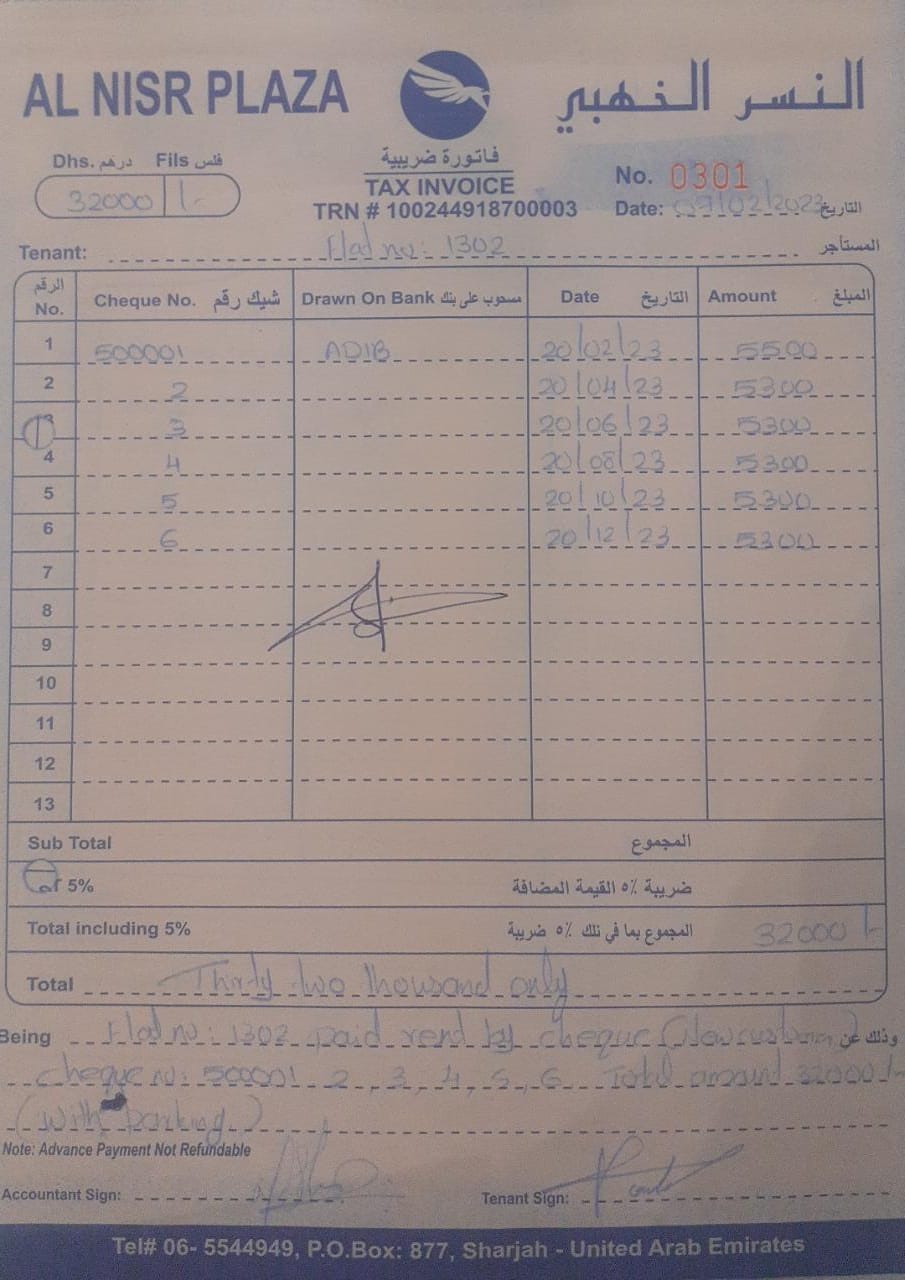 AL NISR PLAZA
النسر الذهبي
Dhs. درهم Fils فلس
32000 /-
فاتورة ضريبية
TAX INVOICE
TRN # 100244918700003
No. 0301
Date: 09/02/2023 التاريخ
Tenant: Flat no: 1302 المستأجر
الرقم No. Cheque No. شيك رقم Drawn On Bank مسحوب على بنك Date التاريخ Amount المبلغ
1 500001 ADIB 20/02/23 5500
2 2 20/04/23 5300
3 3 20/06/23 5300
4 4 20/08/23 5300
5 5 20/10/23 5300
6 6 20/12/23 5300
7
8
9
10
11
12
13
Sub Total المجموع
5% ضريبة ٥٪ القيمة المضافة
Total including 5% المجموع بما في ذلك ٥٪ ضريبة 32000/-
Total Thirty two thousand only
Being Flat no: 1302 paid rent by cheque (New customer) وذلك عن
cheque no: 500001, 2, 3, 4, 5, 6 Total amount 32000/-
(with parking)
Note: Advance Payment Not Refundable
Accountant Sign: Tenant Sign:
Tel# 06- 5544949, P.O.Box: 877, Sharjah - United Arab Emirates